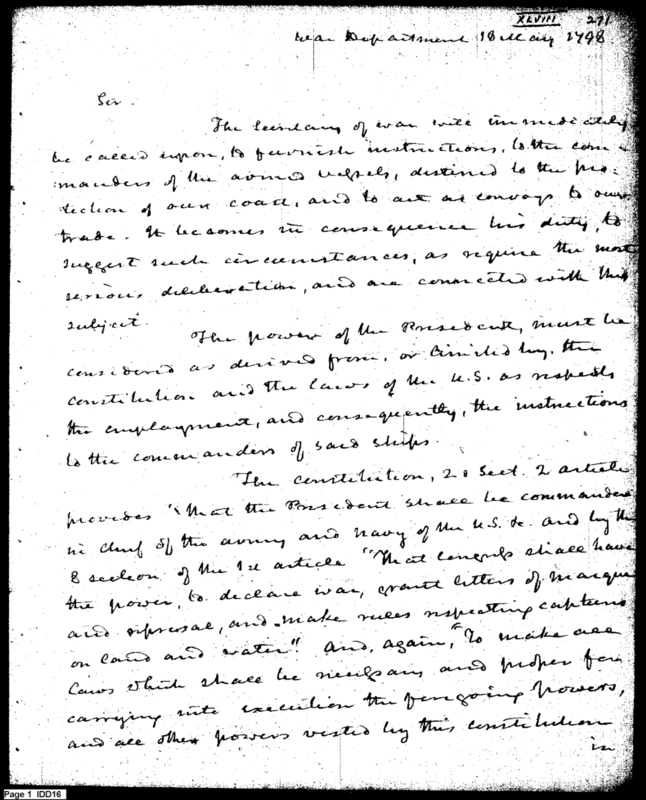 XLVIII 271
War Department 18 May 1798
Sir.
The Secretary of war will immediately
be called upon, to furnish instructions, to the com-
manders of the armed vessels, destined to the pro-
tection of our coast, and to act as convoys to our
trade. It becomes in consequence his duty, to
suggest such circumstances, as require the most
serious deliberation, and are connected with this
subject.
The power of the President, must be
considered as derived from, or limited by, the
constitution and the laws of the U.S. as respects
the employment, and consequently, the instructions
to the commanders of said ships.
The constitution, 2d Sect. 2 article
provides "that the President shall be commander
in chief of the army and navy of the U.S. &c. and by the
8 section of the 1st article "That Congress shall have
the power, to declare war, grant letters of marque
and reprisal, and make rules respecting captures
on land and water". And, again, "To make all
Laws which shall be necessary and proper for
carrying into execution the foregoing powers,
and all other powers vested by this constitution
in
Page 1 IDD16